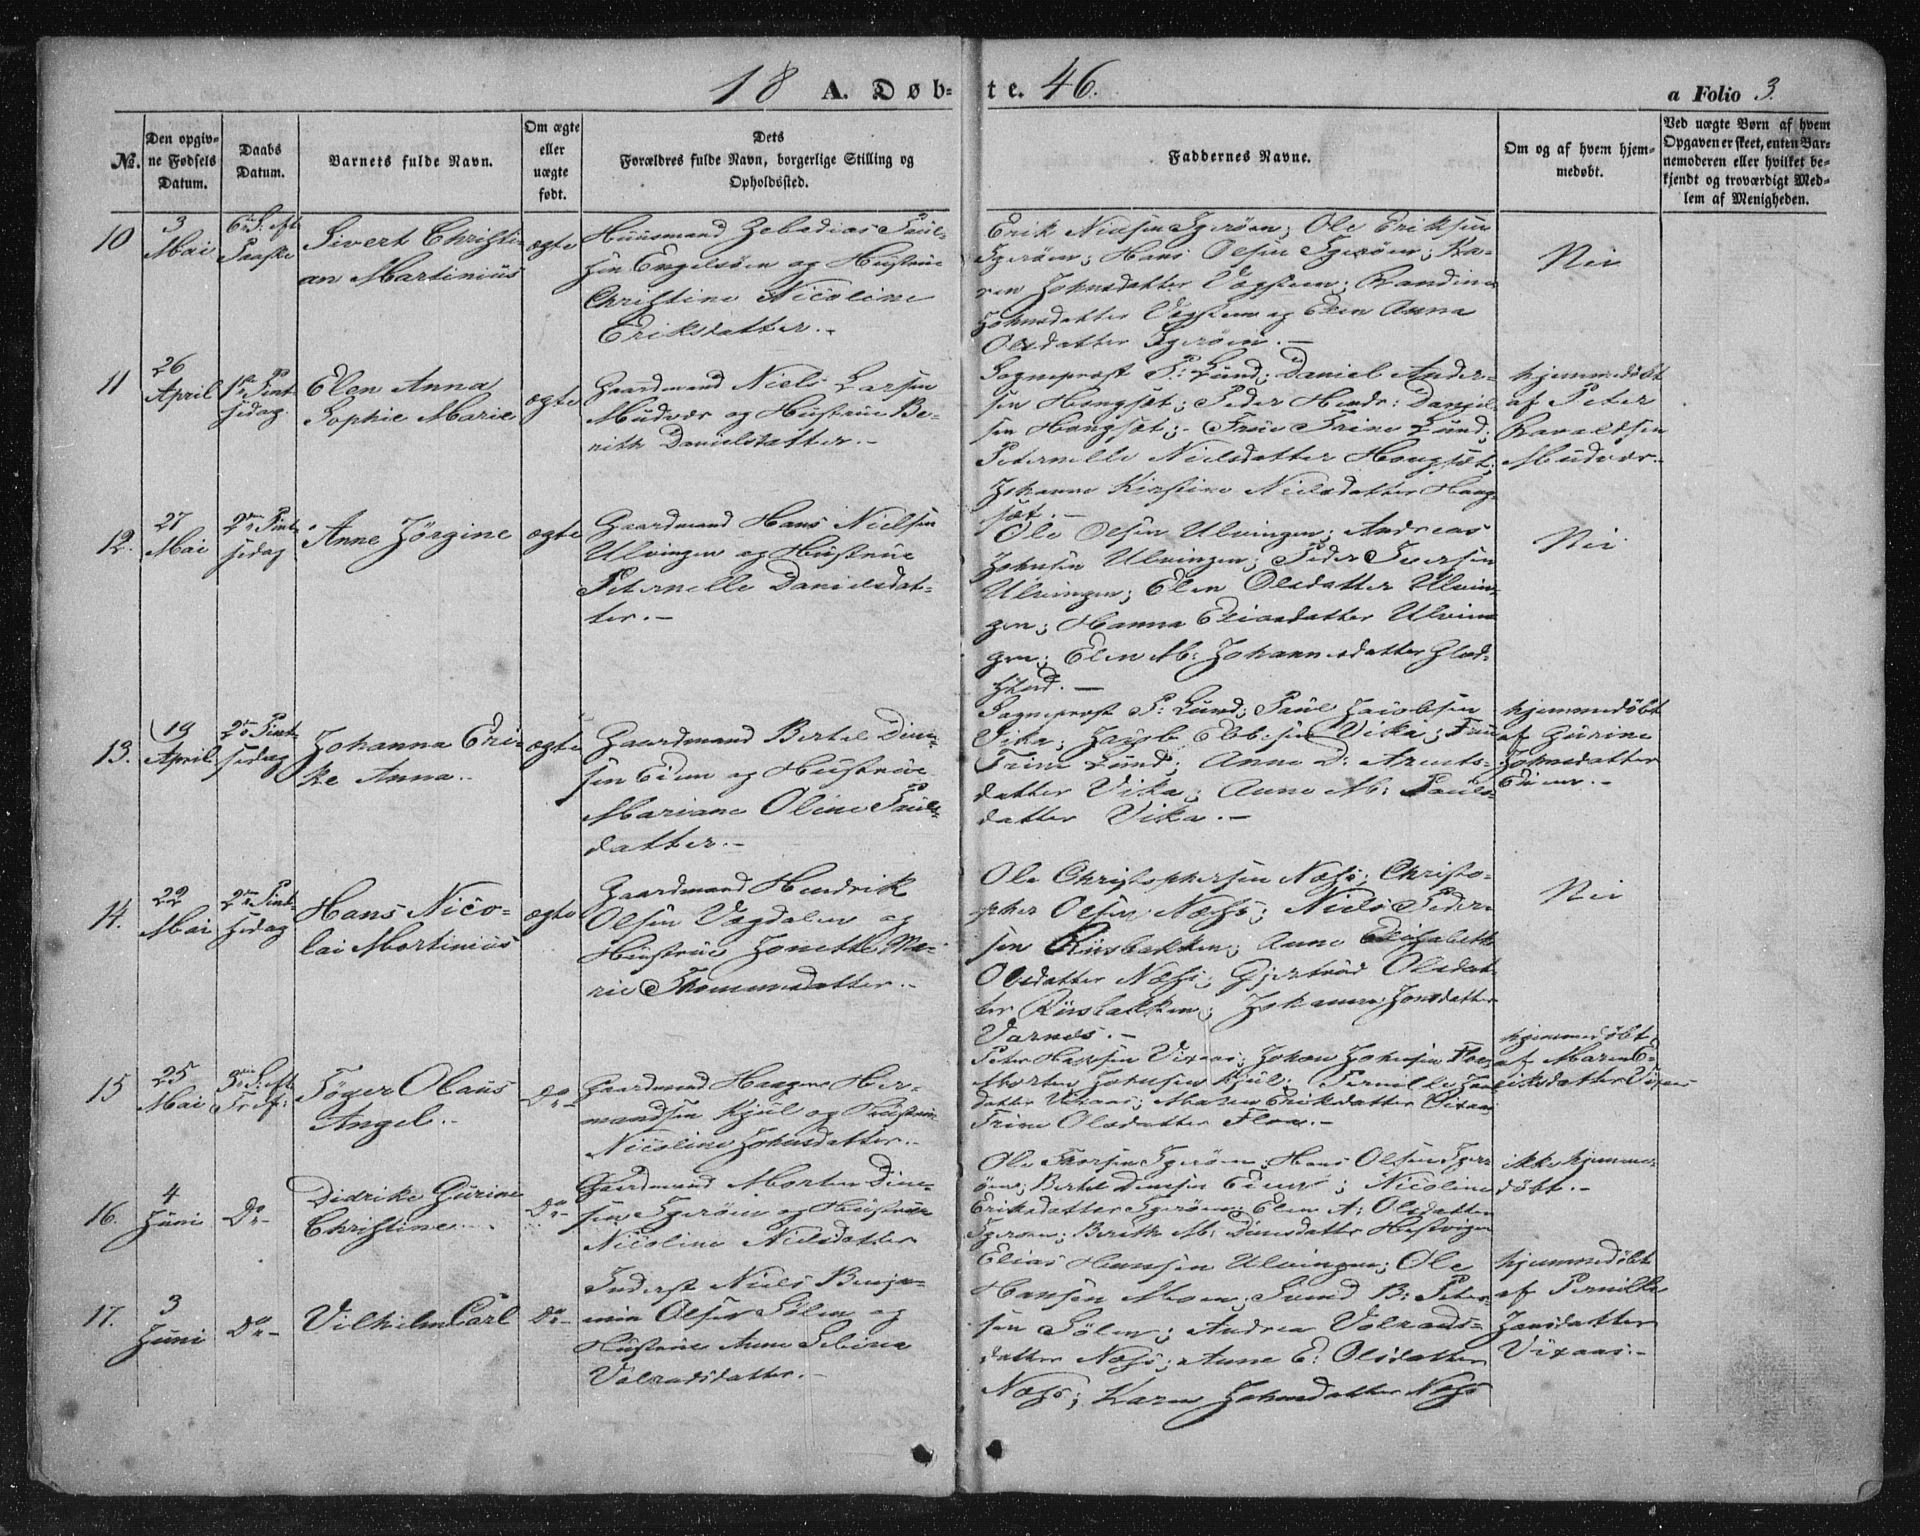 18 A. Døb-te. 46. a Folio 3.
No.
Den opgiv-
ne Fødsels
Datum.
Daabs
Datum.
Barnets fulde Navn.
Om ægte
eller
uægte
født.
Dets
Forældres fulde Navn, borgerlige Stilling og
Opholdssted.
Faddernes Navne.
Om og af hvem hjem-
medøbt.
Ved uægte Børn af hvem
Opgaven er skeet, enten Bar-
nemoderen eller hvilket be-
kjendt og troværdigt Med-
lem af Menigheden.
10
3
Mai
6te S. eft
Paaske
Sivert Christi-
an Martinius
ægte
Huusmand Zebedias Paul-
sen Engelsøen og Hustrue
Christine Nicoline
Eriksdatter.
Erik Nielsen Igerøen; Ole Eriksen
Igerøen; Hans Olsen Igerøen; Ka-
ren Johnsdatter Vegsteen; Randine
Johnsdatter Vegsteen og Elen Anna
Olsdatter Igerøen.-
Nei
11
26
April
1ste Pint
sedag
Elen Anna
Sophie Marie
ægte
Gaardmand Niels Larsen
Mudvær og Hustrue Be-
rith Danielsdatter.-
Sogneprest P: Lund; Daniel Ander-
sen Hongsæt; Peder Hendr: Daniel-
sen Hongsæt; Frue Trine Lund;
Peternelle Nielsdatter Hongsæt;
Johanne Kirstine Nielsdatter Hong-
sæt.-
hjemmedøbt
af Peter
Mudvær.-
12.
27
Mai
2den Pint
sedag
Anne Jörgine
ægte
Gaardmand Hans Nielsen
Ulvingen og Hustrue
Peternelle Danielsdat-
ter.-
Ole Olsen Ulvingen; Andreas
Johnsen Ulvingen; Peder Iversen
Ulvingen; Elen Olsdatter Ulvin-
gen; Hanna Eliasdatter Ulvin-
gen; Elen M: Johannesdatter
Nei
13.
19
April
2den Pint
sedag
Johanna Eri-
ke Anna.
ægte
Gaardmand Bertel Dine-
sen Eidem og Hustrue
Mariane Oline Pauls-
datter.-
Sogneprest P: Lund; Paul Jacobsen
Vika; Jacob Ebbesen Vika; Frue
Trine Lund; Anne D: Arents-
datter Vika; Anne M: Pauls-
datter Vika.-
hjemmedøbt
af Gurine
Johnsdatter
Eidem.-
14.
22
Mai
2den Pint-
sedag
Hans Nico-
lai Mortinius
ægte
Gaardmand Hendrik
Olsen Vegdalen og
Hustrue Jonette Ma-
rie Thomasdatter.-
Ole Christophersen Næss; Christo-
pher Olsen Næss; Niels Peder-
sen Riisbakken; Anne Elisabeth
Olsdatter Næss; Gjertrud Olsdat-
ter Riisbakken; Johanna Jonsdatter
Varnes.-
Nei
15
25
Mai
3die S. eft
Tref:
Töger Olaus
Angel.
Do-
Gaardmand Haagen Her-
mandsen Kjul og Hustrue
Nicoline Johnsdatter.-
Peter Hansen Vixaas; Johan Johnsen Floa;
Morten Johnsen Kjul; Pernille Jons-
datter Vixaas; Maren Eriksdatter Vixaas
Trine Olsdatter Floa.-
hjemmedøbt
af Maren E-
riksdatter Vixaas
16.
4
Juni
Do-
Didrike Gurine
Christine
Do-
Gaardmand Morten Dine-
sen Igerøen og Hustrue
Nicoline Nielsdatter
Ole Thorsen Igerøen; Hans Olsen Iger-
øen; Bertel Dinesen Eidem; Nicoline
Eriksdatter Igerøen; Elen A: Olsdatter
Igerøen; Berith M: Dinesdatter
ikke hjemme-
døbt.-
17.
3
Juni
Do-
Vilhelm Carl
Do-
Inderst Niels Benja-
min Olsen Sølen og
Hustrue Anne Sebina
Volradsdatter.-
Elias Hansen Ulvingen; Ole
Hansen Moen; Svend B: Peter-
sen Sølen; Andrea Volrads-
datter Næss; Anne E: Olsdatter
Næss; Karen Johnsdatter Næss
hjemmedøbt
af Pernille
Jonsdatter
Vixaas.-